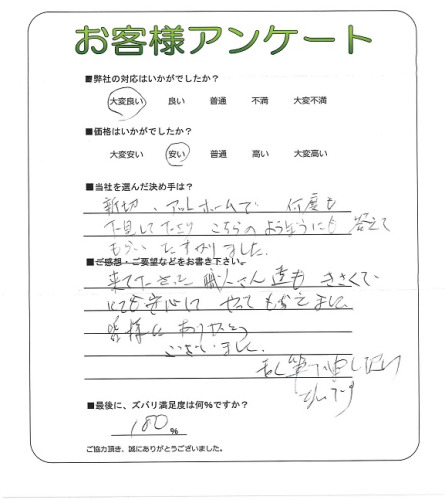 お客様アンケート
■弊社の対応はいかがでしたか?
大変良い 良い 普通 不満 大変不満
■価格はいかがでしたか?
大変安い 安い 普通 高い 大変高い
■当社を選んだ決め手は?
親切、アットホームで 何度も
下見してくださり こちらのようぼうにも 答えて
もらい たすかりました。
■ご感想・ご要望などをお書き下さい。
来て下さった 職人さん達も きさくで
とても安心して やってもらえました。
皆様に ありがとう
ございました。
■最後に、ズバリ満足度は何%ですか?
100%
ご協力頂き、誠にありがとうございました。